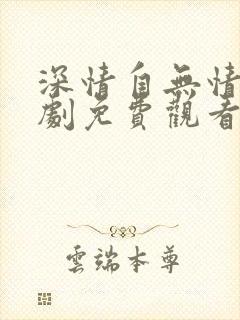 深情自無情
劇免費觀看
雲端本尊